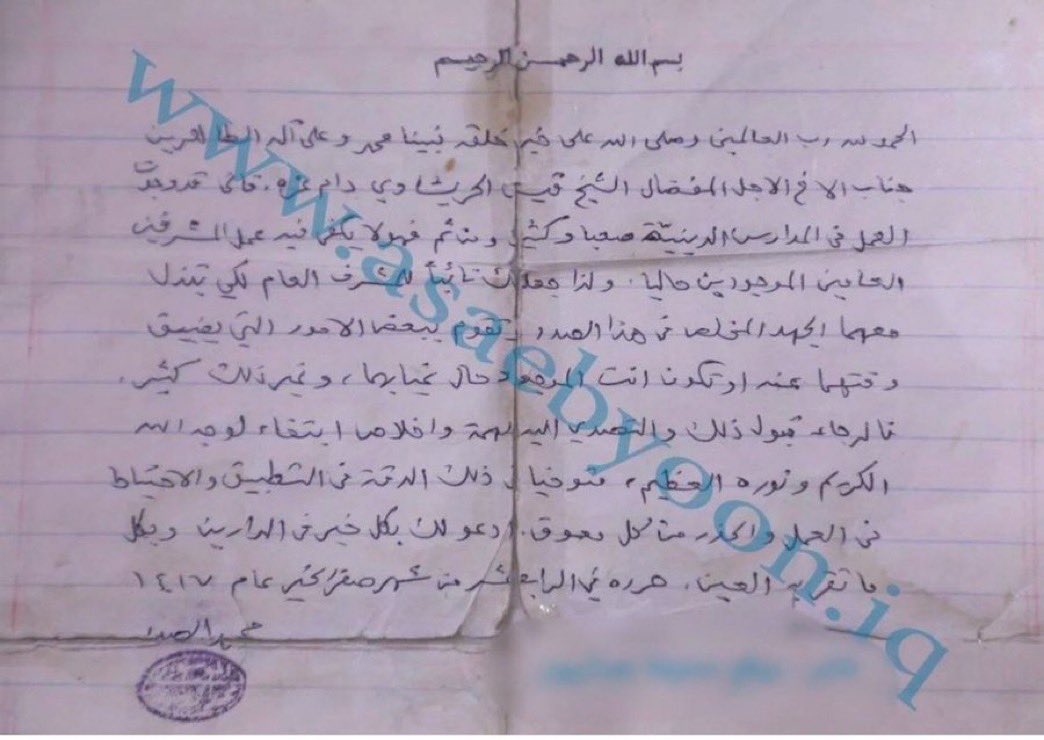 بسم الله الرحمن الرحيم
الحمد لله رب العالمين وصلى الله على خير خلقه نبينا محمد وعلى آله الطاهرين
جناب الاخ الاجل المفضال الشيخ قيس الحريشاوي دام عزه. فاني قد وجدت
العمل في المدارس الدينية صعبا وكثيرا ومن ثم فهو لا يكفي فيه عمل المشرفين
العامين الموجودين حاليا. ولذا جعلتك نائباً للمشرف العام لكي تبذل
معهما الجهد المخلص في هذا الصدد وتقوم ببعض الامور التي يضيق
وقتهما عنه او تكون انت الموجود حال غيابهما، وغير ذلك كثير.
فالرجاء قبول ذلك والتصدي اليه بهمة واخلاص ابتغاء لوجه الله
الكريم ونوره العظيم، متوخيا في ذلك الدقة في التطبيق والاحتياط
في العمل والحذر من كل معوق. ادعو لك بكل خير في الدارين وبكل
ما تقر به العين. حرره في الرابع عشر من شهر صفر الخير عام ١٤١٧
محمد الصدر
www.asaebyoon.iq